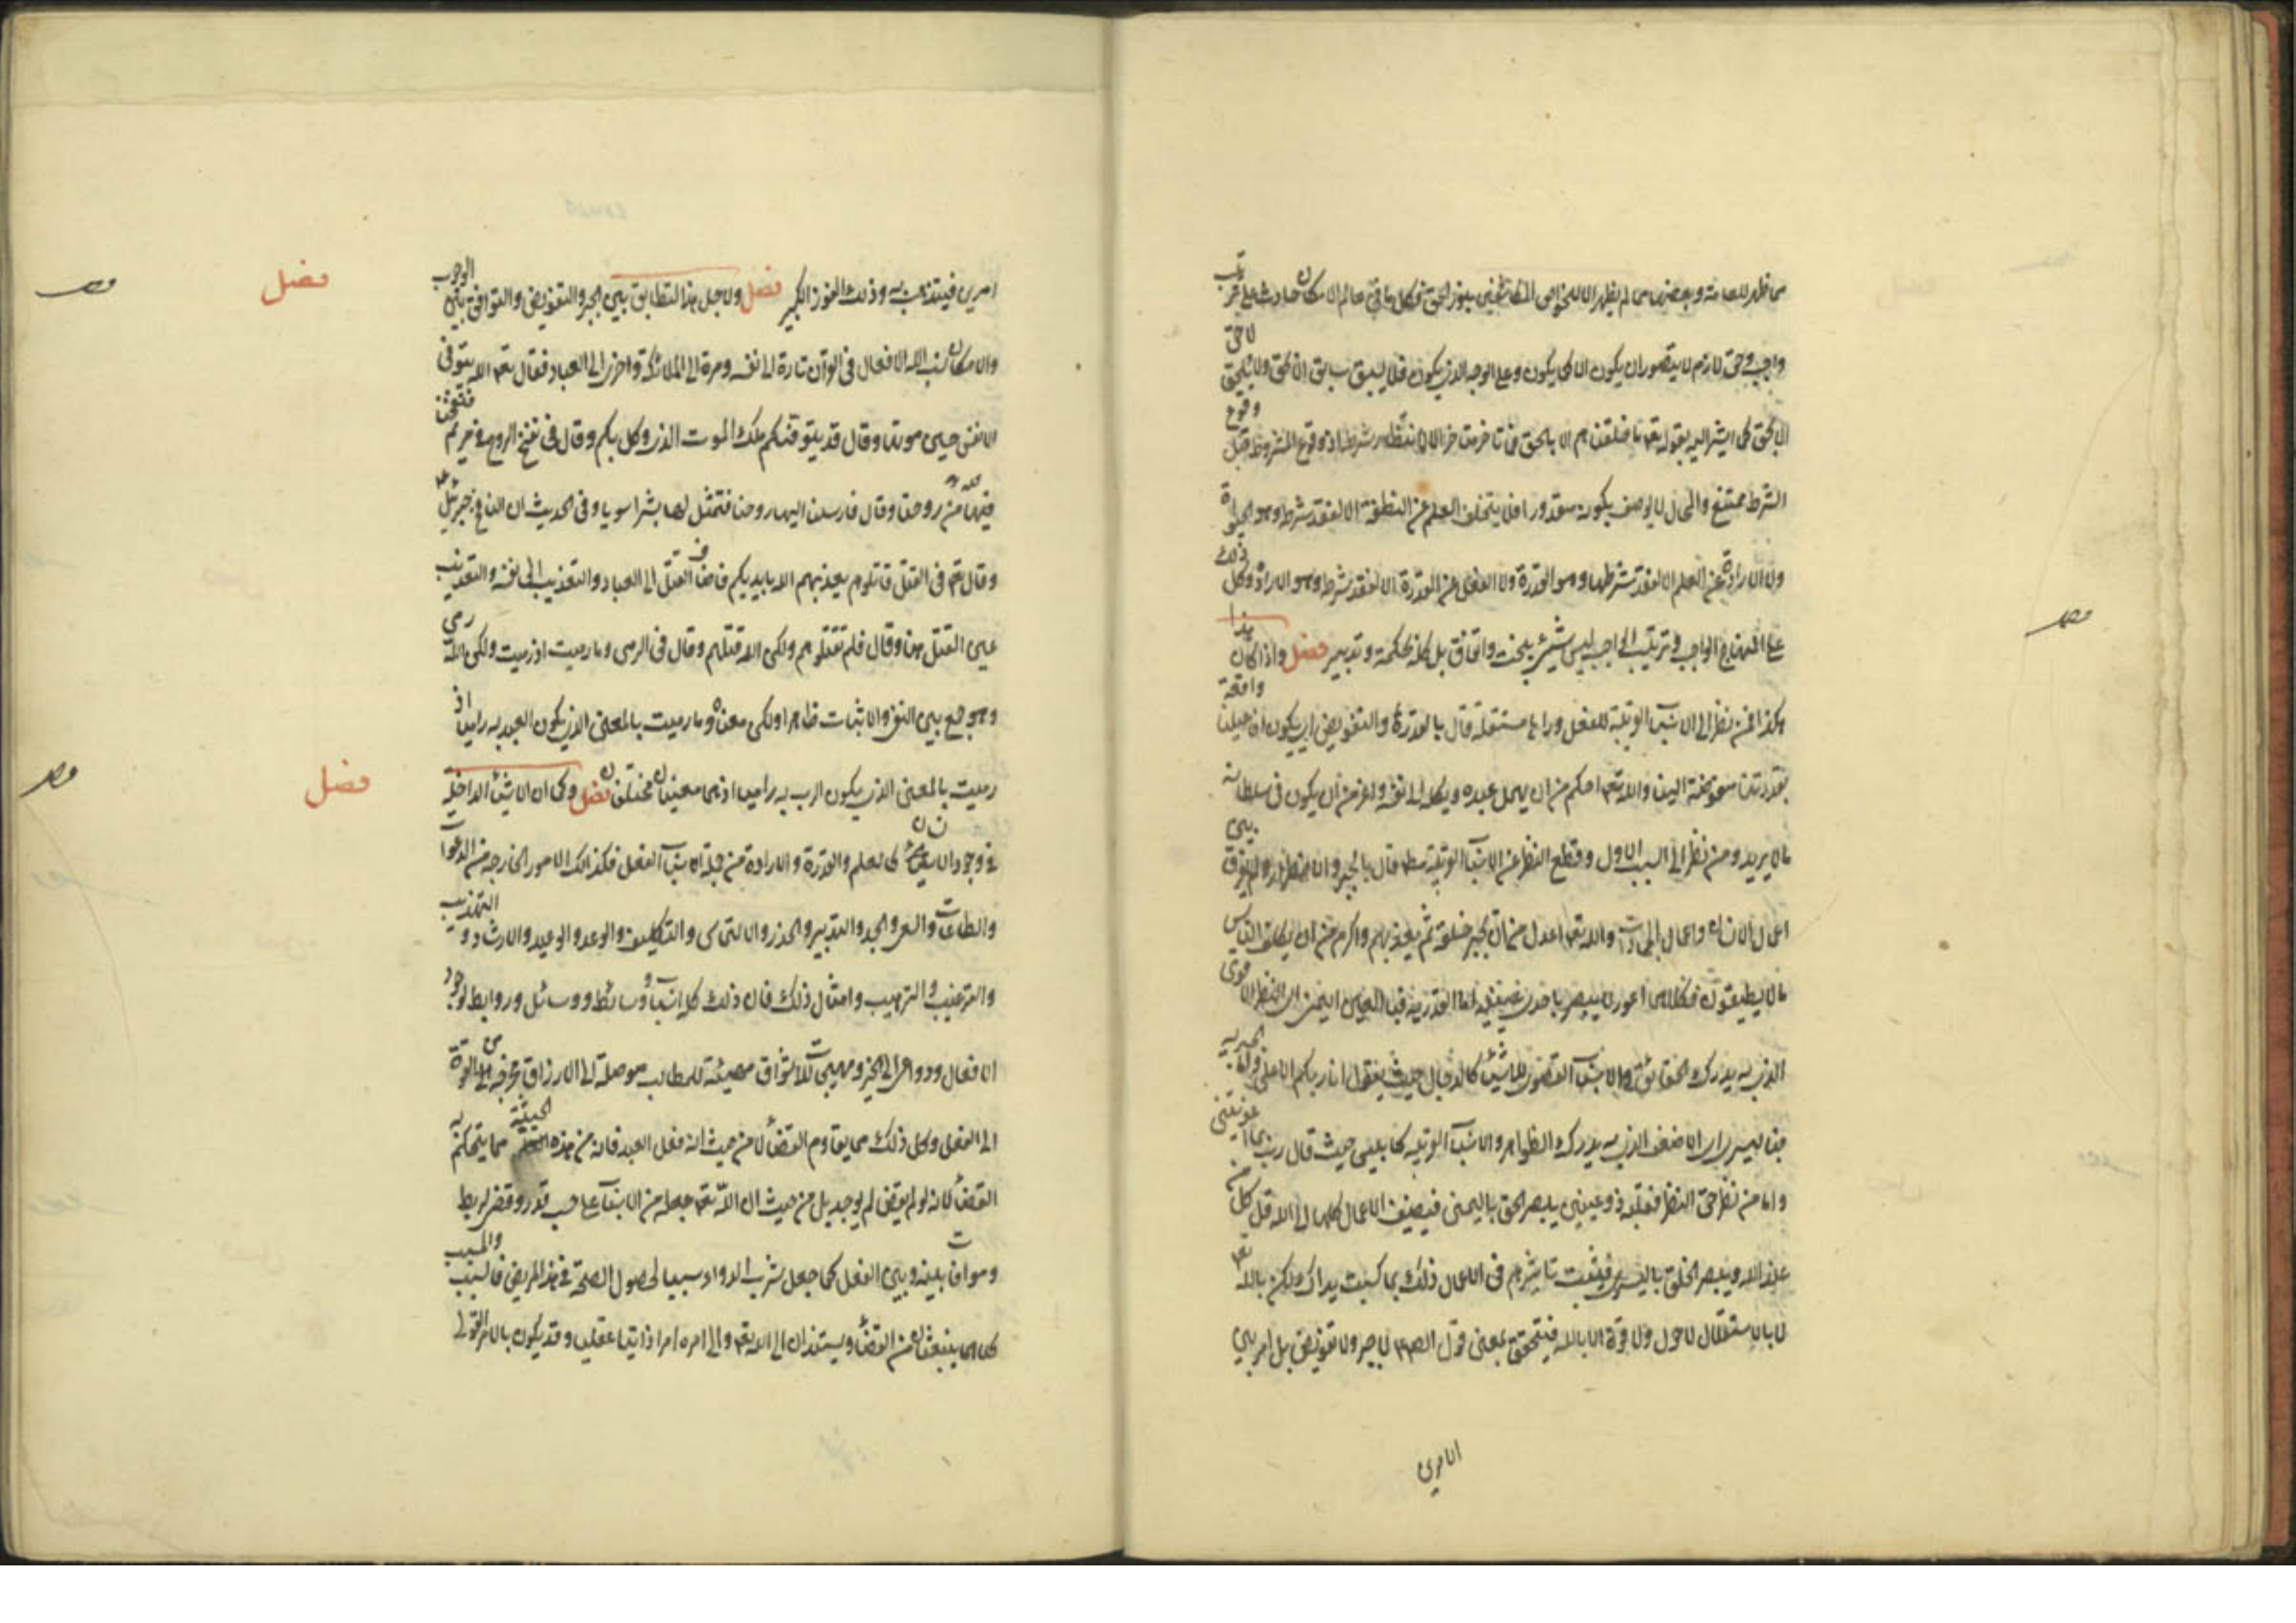 مما ظهر للعامة وبعضها مما لم يظهر الا للخواص المكاشفين بنور الحق فكل ما في عالم الامكان حادث على ترتيب
واجب وحق لازم لا يتصور ان يكون الا كما يكون وعلى الوجه الذي يكون فلا يسبق سابق الا بحق ولا يلحق لاحق
الا بحق كما اشير اليه بقوله تعالى ما خلقناهما الا بالحق فما تاخر متاخر الا لانتظار شرطه اذ وقوع المشروط قبل وقوع
الشرط ممتنع والمحال لا يوصف بكونه مقدورا فلا يتخلف العلم عن النطفة الا لفقد شرطه وهو الحيوة
ولا الارادة عن العلم الا لفقد شرطها وهو القدرة ولا الفعل عن القدرة الا لفقد شرطه وهو الارادة وكل ذلك
على المنهاج الواجب وترتيب الواجب ليس شيء ببخت واتفاق بل كله بحكمة وتدبير فصل واذا كان هذا
هكذا فمن نظر الى الاسباب القريبة للفعل ورآها مستقلة قال بالقدرة والتفويض اي بكون افاعيلنا واقعة
بقدرتنا مفوضة الينا والله تعالى احكم من ان يهمل عبده ويكله الى نفسه واعز من ان يكون في سلطانه
ما لا يريد ومن نظر الى السبب الاول وقطع النظر عن الاسباب القريبة مطلقا قال بالجبر والاضطرار ولم يفرق بين
اعمال الانسان واعمال الجمادات والله تعالى اعدل من ان يجبر خلقه ثم يعذبهم واكرم من ان يكلف الناس
ما لا يطيقون فكلاهما اعور لا يبصر باحدى عينيه اما القدرية فبالعين اليمنى اي النظر الاقوى
الذي به يدرك الحقائق والاسباب القصوى للاشياء كالدجال حيث يقول انا ربكم الاعلى واما الجبرية
فباليسرى اي الاضعف الذي به يدرك الظواهر والاسباب القريبة كابليس حيث قال رب بما اغويتني
واما من نظر حق النظر فقلبه ذو عينين يبصر الحق باليمنى فيضيف الاعمال كلها الى الله قل كل من
عند الله ويبصر الخلق باليسرى فيثبت تاثيرهم في الاعمال ذلك بما كسبت يداك ولكن بالله تعالى
لا بالاستقلال لا حول ولا قوة الا بالله فيتحقق بمعنى قول الصادق لا جبر ولا تفويض بل امر بين
الامرين
امرين فيتذهب به وذلك الفوز الكبير فصل ولاجل هذا التطابق بين الجبر والتفويض والتوافق بين الوجوب
والامكان نسب الله الافعال في القرآن تارة الى نفسه ومرة الى الملائكة واخرى الى العباد فقال تعالى الله يتوفى
الانفس حين موتها وقال قد يتوفيكم ملك الموت الذي وكل بكم وقال في نفخ الروح في مريم فنفخنا
فيها من روحنا وقال فارسلنا اليها روحنا فتمثل لها بشرا سويا وفي الحديث ان النافخ جبرئيل
وقال تعالى في القتل قاتلوهم يعذبهم الله بايديكم فاضاف القتل الى العباد والتعذيب الى نفسه والتعذيب
عين القتل هنا وقال فلم تقتلوهم ولكن الله قتلهم وقال في الرمي وما رميت اذ رميت ولكن الله رمى
وهو جمع بين النفي والاثبات ظاهرا ولكن معناه وما رميت بالمعنى الذي يكون العبد به راميا اذ
رميت بالمعنى الذي يكون الرب به راميا اذ هما معنيان مختلفان فصل وكما ان الاشياء الداخلة
في وجود الانسان كالعلم والقدرة والارادة من جملة اسباب الفعل فكذلك الامور الخارجة من الدعوات
والطاعات والسعي والجد والتدبير والحذر والالتماس والتكليف والوعد والوعيد والارشاد والتهذيب
والترغيب والترهيب وامثال ذلك فان ذلك كله اسباب ووسائط ووسائل وروابط لوجود
الافعال ودواعي الى الخير ومهيجات للاشواق مهيئة للمطالب موصلة الى الارزاق مخرجة من القوة
الى الفعل وكل ذلك مما يقاوم القضاء لا من حيث انه فعل العبد فانه من هذه الحيثية مما يتحكم به
القضاء لانه لو لم يقض لم يوجد بل من حيث ان الله تعالى جعله من الاسباب على حسب قدر وقضى لربط
ومواف‍ات بينه وبين الفعل كما جعل شرب الدواء سببا لحصول الصحة في هذا المريض فالسبب والمسبب
كلاهما ينبعثان من القضاء ويستندان الى الله تعالى والى امره امرا ذاتيا عقليا وقد يكون بالامر القولي
فصل
فصل